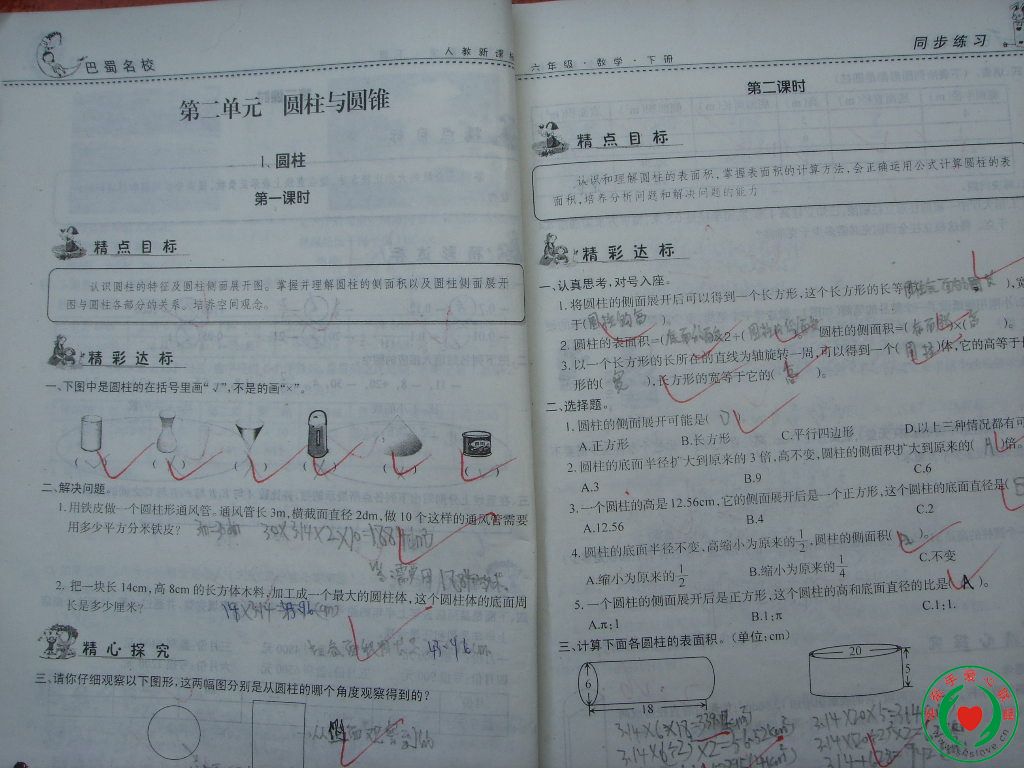 巴蜀名校
人教新课标
第二单元 圆柱与圆锥
1.圆柱
第一课时
精点目标
认识圆柱的特征及圆柱侧面展开图。掌握并理解圆柱的侧面积以及圆柱侧面展开
图与圆柱各部分的关系。培养空间观念。
精彩达标
一、下图中是圆柱的在括号里画“√”,不是的画“×”。
二、解决问题。
1.用铁皮做一个圆柱形通风管。通风管长3m,横截面直径2dm,做10个这样的通风管需要
用多少平方分米铁皮?
3m=30dm 30×3.14×2×10=1884
2.把一块长14cm,高8cm的长方体木料,加工成一个最大的圆柱体,这个圆柱体的底面周
长是多少厘米?
精心探究
三、请你仔细观察以下图形,这两幅图分别是从圆柱的哪个角度观察得到的?
六年级·数学·下册
同步练习
第二课时
精点目标
认识和理解圆柱的表面积,掌握表面积的计算方法,会正确运用公式计算圆柱的表
面积,培养分析问题和解决问题的能力
精彩达标
一、认真思考,对号入座。
1.将圆柱的侧面展开后可以得到一个长方形,这个长方形的长等于( ),宽
于(圆柱的高)。
2.圆柱的表面积=(底面的面积×2+(圆柱的侧面积 圆柱的侧面积=( )×(高
3.以一个长方形的长所在的直线为轴旋转一周,可以得到一个(圆柱)体,它的高等于长
形的(宽),长方形的宽等于它的( )。
二、选择题。
1.圆柱的侧面展开可能是(D)。
A.正方形 B.长方形 C.平行四边形 D.以上三种情况都有可
2.圆柱的底面半径扩大到原来的3倍,高不变,圆柱的侧面积扩大到原来的(A)倍。
A.3 B.9 C.6
3.一个圆柱的高是12.56cm,它的侧面展开后是一个正方形,这个圆柱的底面直径是(B
A.12.56 B.4 C.2
4.圆柱的底面半径不变,高缩小为原来的1/2,圆柱的侧面积( )。
A.缩小为原来的1/2 B.缩小为原来的1/4 C.不变
5.一个圆柱的侧面展开后是正方形,这个圆柱的高和底面直径的比是(A)。
A.π:1 B.1:π C.1:1.
三、计算下面各圆柱的表面积。(单位:cm)
6
18
20
5
www.hslove.cn